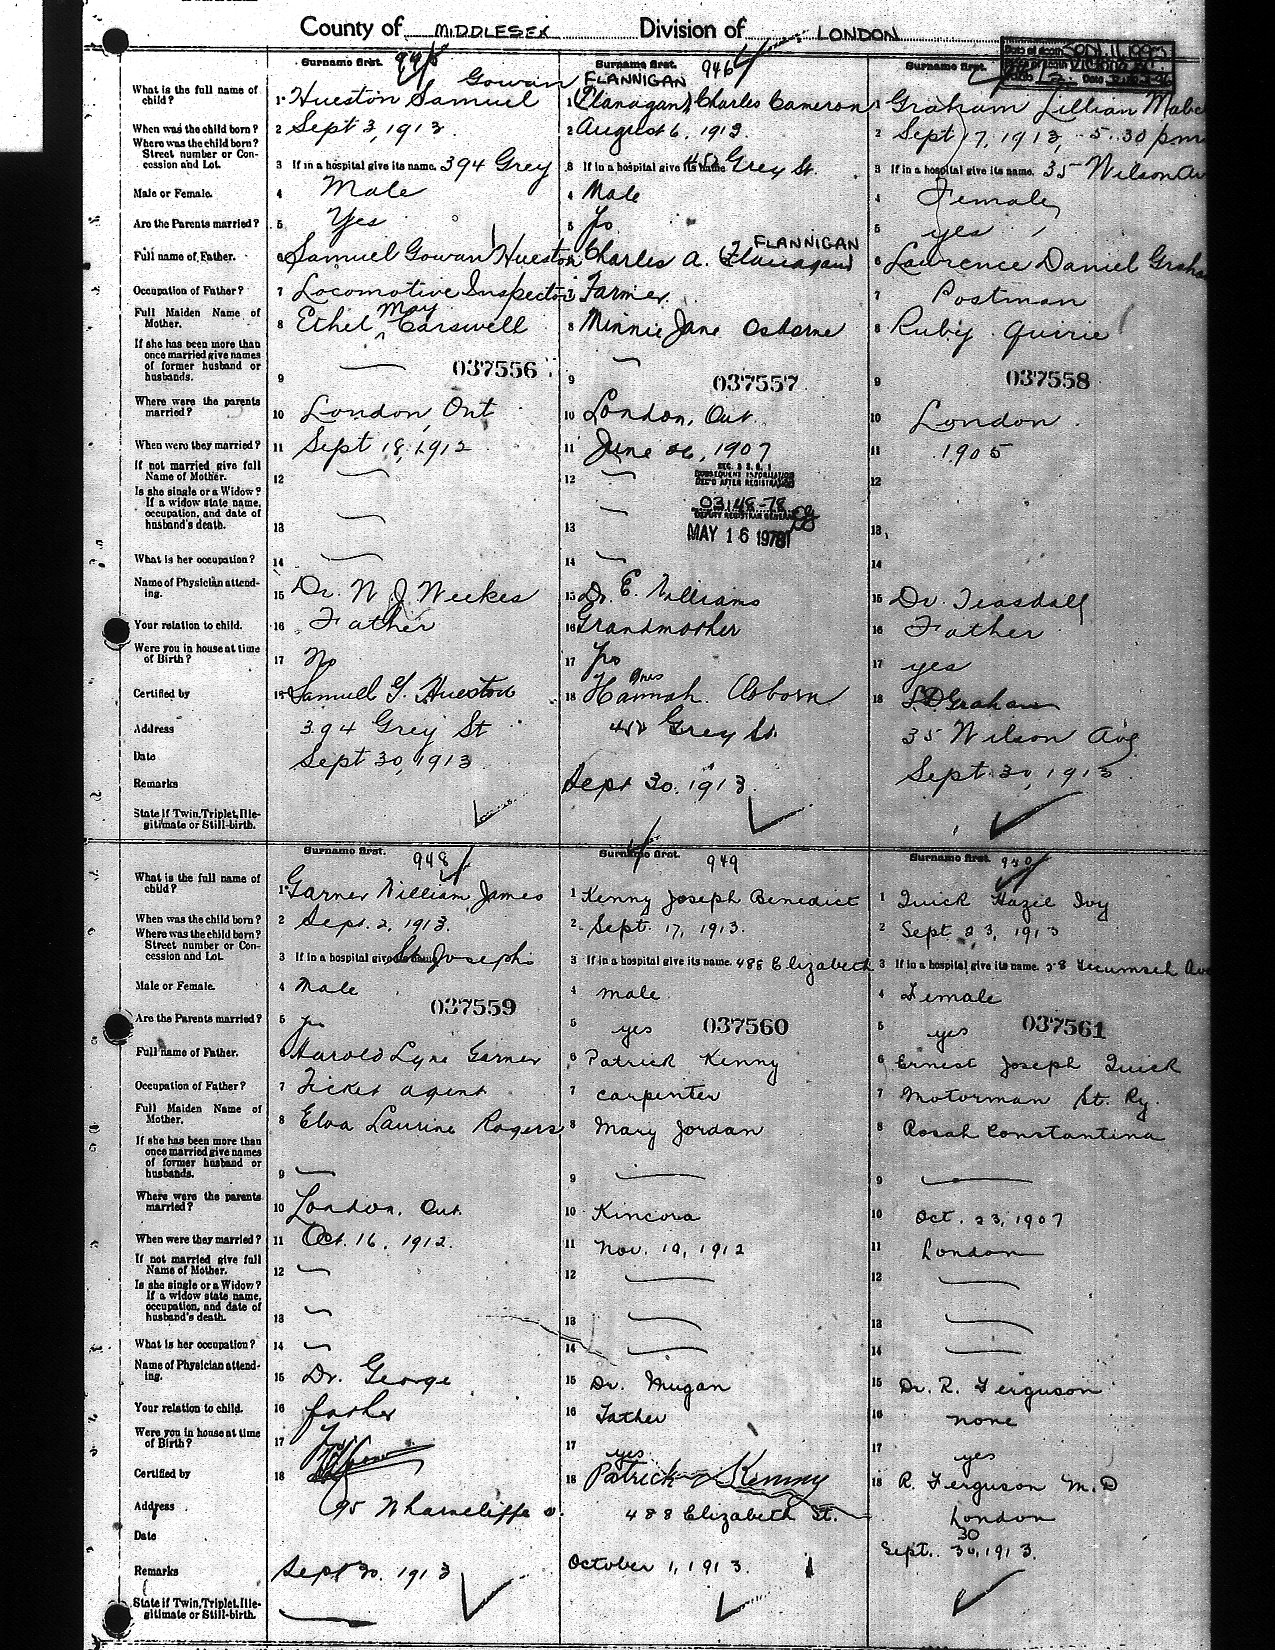 County of MIDDLESEX Division of LONDON
Surname first. Surname first. 946 Surname first.
What is the full name of child? 1 Hueston Samuel Gowan 1 FLANNIGAN (Flanagan) Charles Cameron 1 Graham Lillian Mabel
When was the child born? 2 Sept 3, 1913. 2 August 6, 1913. 2 Sept 17, 1913, 5.30 p.m.
Where was the child born? Street number or Concession and Lot. 3 If in a hospital give its name. 394 Grey 3 If in a hospital give its name Grey St. 3 If in a hospital give its name. 35 Wilson Av
Male or Female. 4 Male 4 Male 4 Female
Are the Parents married? 5 Yes 5 5 yes
Full name of Father. 6 Samuel Gowan Hueston 6 Charles A. FLANNIGAN 6 Lawrence Daniel Graham
Occupation of Father? 7 Locomotive Inspector 7 Farmer 7 Postman
Full Maiden Name of Mother. 8 Ethel May Carswell 8 Minnie Jane Osborne 8 Ruby Quirie
If she has been more than once married give names of former husband or husbands. 9 037556 9 037557 9 037558
Where were the parents married? 10 London, Ont 10 London, Ont. 10 London.
When were they married? 11 Sept 18, 1912 11 June 26, 1907 11 1905
If not married give full Name of Mother. 12 12 12
SUBSEQUENT INFORMATION
REC'D AFTER REGISTRATION
03148-78
DEPUTY REGISTRAR GENERAL
MAY 16 1978
Is she single or a Widow? If a widow state name, occupation, and date of husband's death. 13 13 13
What is her occupation? 14 14 14
Name of Physician attending. 15 Dr. N J Weekes 15 Dr. E. Williams 15 Dr. Teasdall
Your relation to child. 16 Father 16 Grandmother 16 Father
Were you in house at time of Birth? 17 No 17 17 yes
Certified by 18 Samuel G. Hueston 18 Mrs Hannah Osborn 18 L D Graham
Address 394 Grey St Grey St. 35 Wilson Ave
Date Sept 30, 1913 Sept 30, 1913
Remarks Sept 30. 1913.
State if Twin, Triplet, Illegitimate or Still-birth.
Surname first. 948 Surname first. 949 Surname first.
What is the full name of child? 1 Garner William James 1 Kenny Joseph Benedict 1 Quick Hazel Ivy
When was the child born? 2 Sept. 2, 1913. 2 Sept. 17, 1913. 2 Sept. 23, 1913
Where was the child born? Street number or Concession and Lot. 3 If in a hospital give its name St Josephs 3 If in a hospital give its name. 488 Elizabeth 3 If in a hospital give its name. Tecumseh Ave
Male or Female. 4 Male 4 male 4 Female
Are the Parents married? 5 037559 5 yes 037560 5 yes 037561
Full name of Father. 6 Harold Lyne Garner 6 Patrick Kenny 6 Ernest Joseph Quick
Occupation of Father? 7 Ticket agent 7 carpenter 7 Motorman St. Ry.
Full Maiden Name of Mother. 8 Elva Laurine Rogers 8 Mary Jordan 8 Rosah Constantina
If she has been more than once married give names of former husband or husbands. 9 9 9
Where were the parents married? 10 London, Ont. 10 Kincora 10 Oct. 23, 1907
When were they married? 11 Oct. 16, 1912. 11 Nov. 19, 1912 11 London
If not married give full Name of Mother. 12 12 12
Is she single or a Widow? If a widow state name, occupation, and date of husband's death. 13 13 13
What is her occupation? 14 14 14
Name of Physician attending. 15 Dr. George 15 Dr. Mugan 15 Dr. R. Ferguson
Your relation to child. 16 father 16 Father 16 none
Were you in house at time of Birth? 17 17 yes 17 yes
Certified by 18 18 Patrick Kenny 18 R. Ferguson M.D
Address 95 Wharncliffe 488 Elizabeth St. London
Date Sept. 30, 1913.
Remarks Sept 30. 1913 October 1, 1913.
State if Twin, Triplet, Illegitimate or Still-birth.